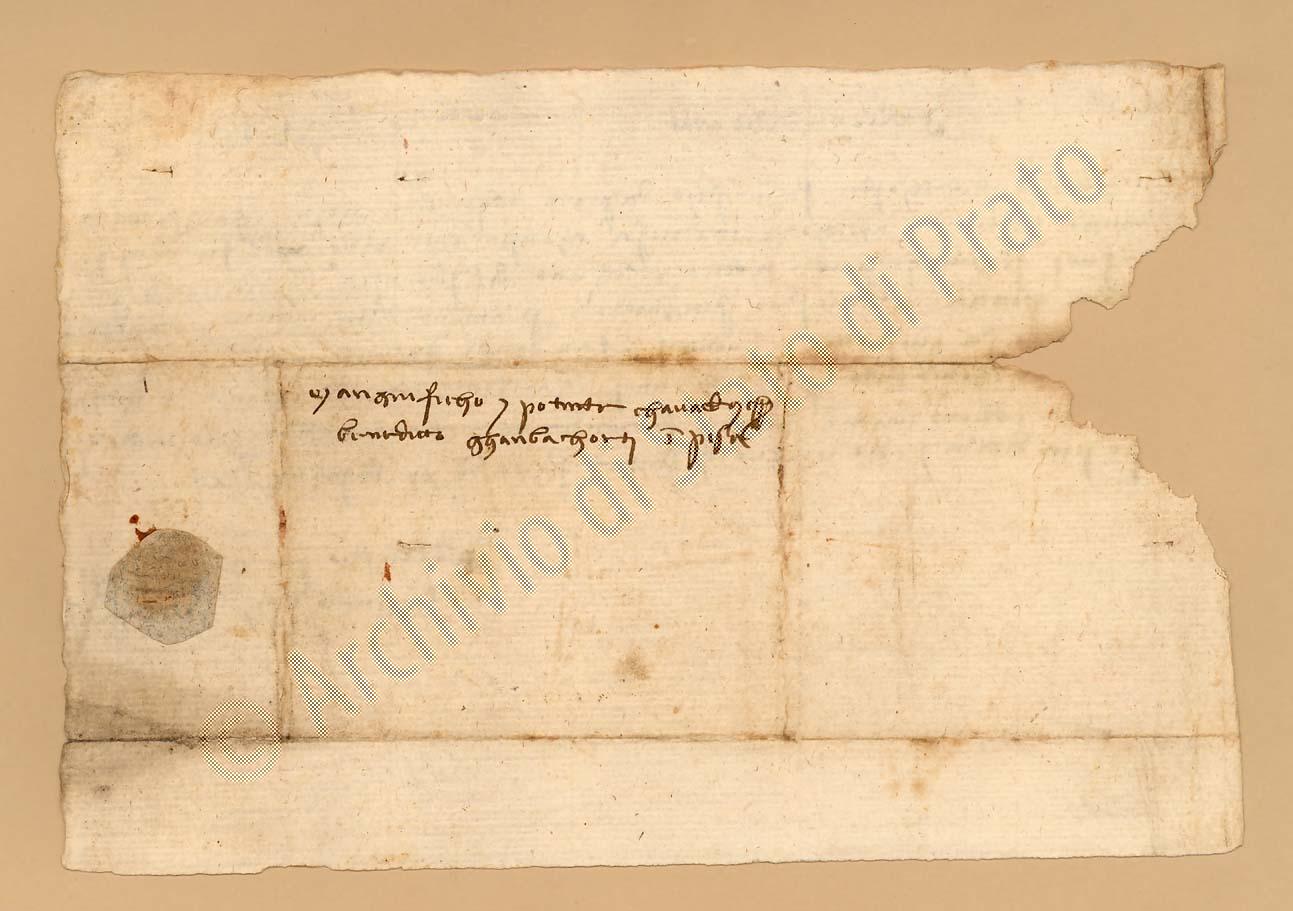 Mangnificho e potente chavalere
benedetto ghanbachorti in pisa
© Archivio di Stato di Prato